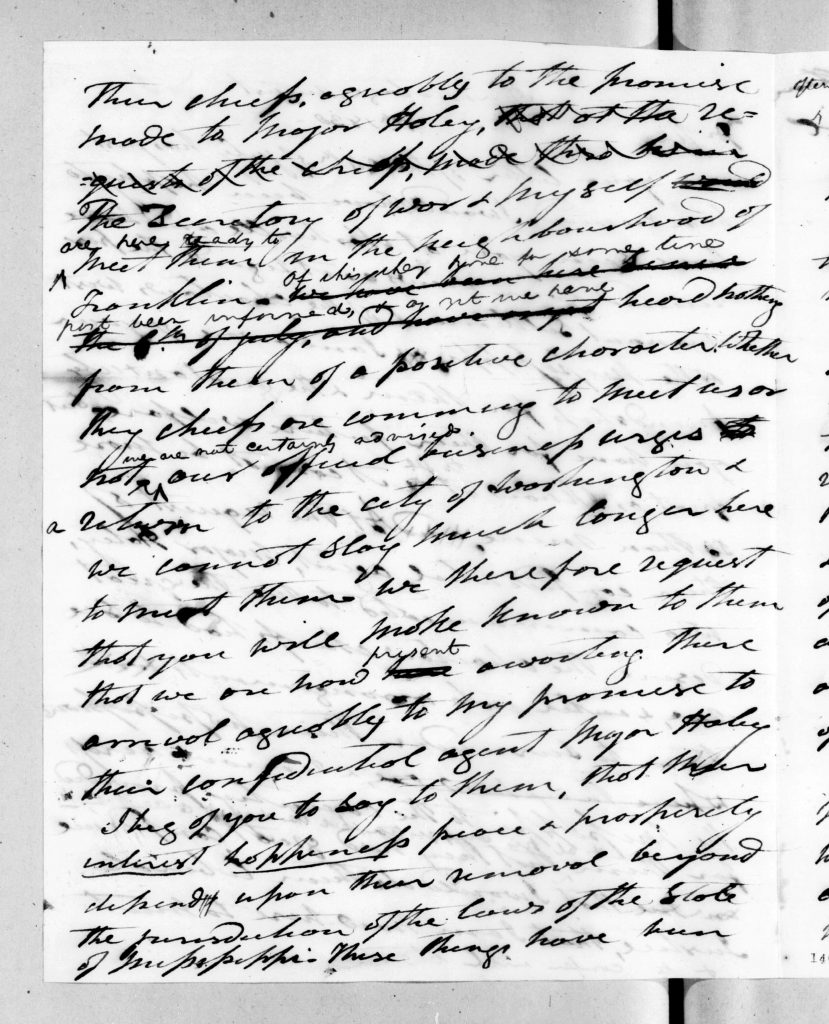 their chiefs, agreably to the promise
made to Major Haley, that at the re=
=quests of the chiefs, made thro him
The Secretary of war & myself
are here ready to
meet them in the neighbourhood of
of this they have for some time
Franklin. We have been here since
past been informed, & as yet we have
the 6th of July, and have as yet heard nothing
from them of a positive character. Whether
they chiefs are comming to meet us or
we are not certainly advised.
not, our official business urges
a return to the city of Washington &
we cannot stay much longer here
to meet them we therefore request
that you will make known to them
present
that we are now here awaiting there
arrival agreably to my promise to
their confidential agent Major Haley
I beg of you to say to them, that their
interest happiness peace & prosperity
depends upon their removal beyond
the jurisdiction of the laws of the State
of Mississippi. These things have been
after